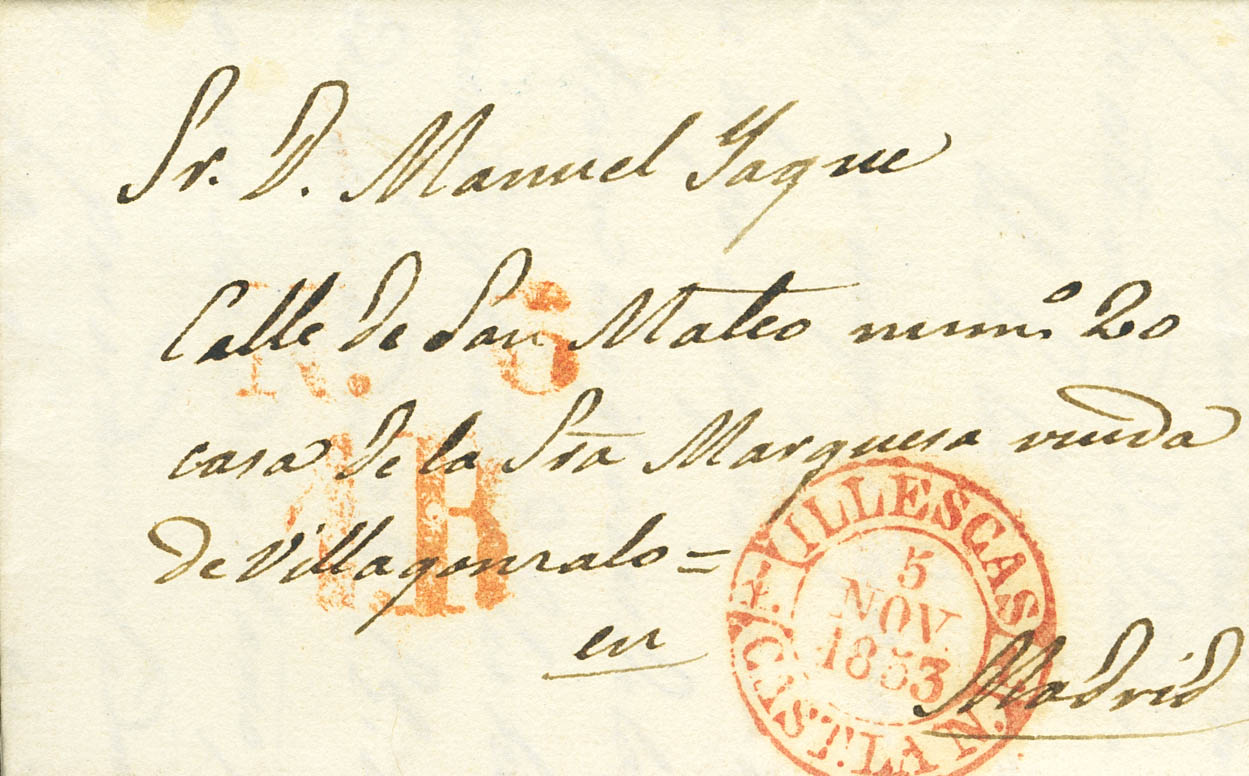 Sr. D. Manuel Yague
Calle de San Mateo num.º 20
casa de la Sra Marquesa viuda
de Villagonzalo =
en Madrid
R. 6
1R
VILLESCAS
5
NOV.
1853
CAST. LA N.